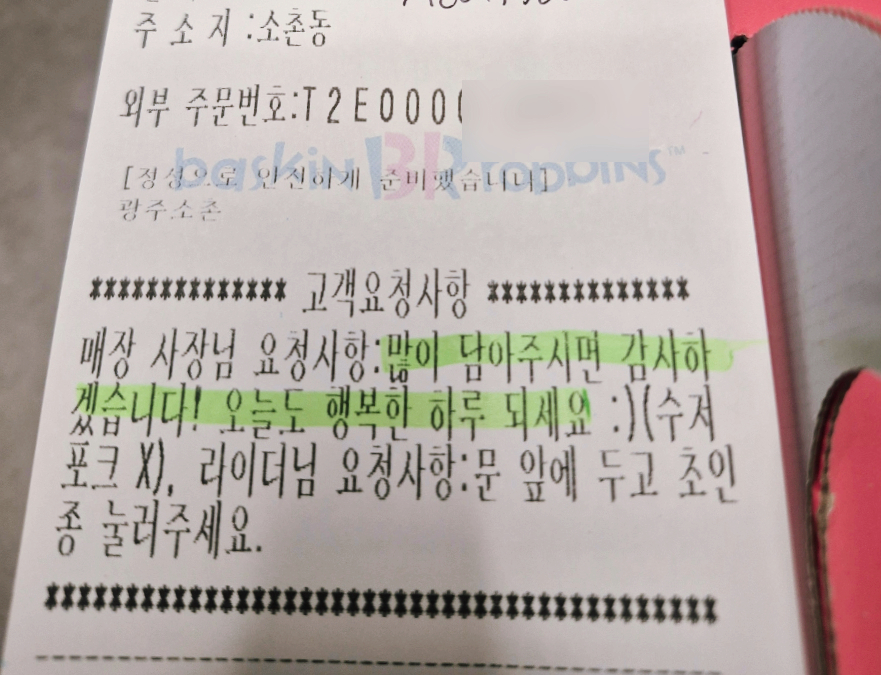 주 소 지 :소촌동
외부 주문번호:T2E0000
baskin BR robbins™
[정성으로 안전하게 준비했습니다]
광주소촌
************** 고객요청사항 **************
매장 사장님 요청사항:많이 담아주시면 감사하
겠습니다! 오늘도 행복한 하루 되세요 :)(수저
포크 X), 라이더님 요청사항:문 앞에 두고 초인
종 눌러주세요.